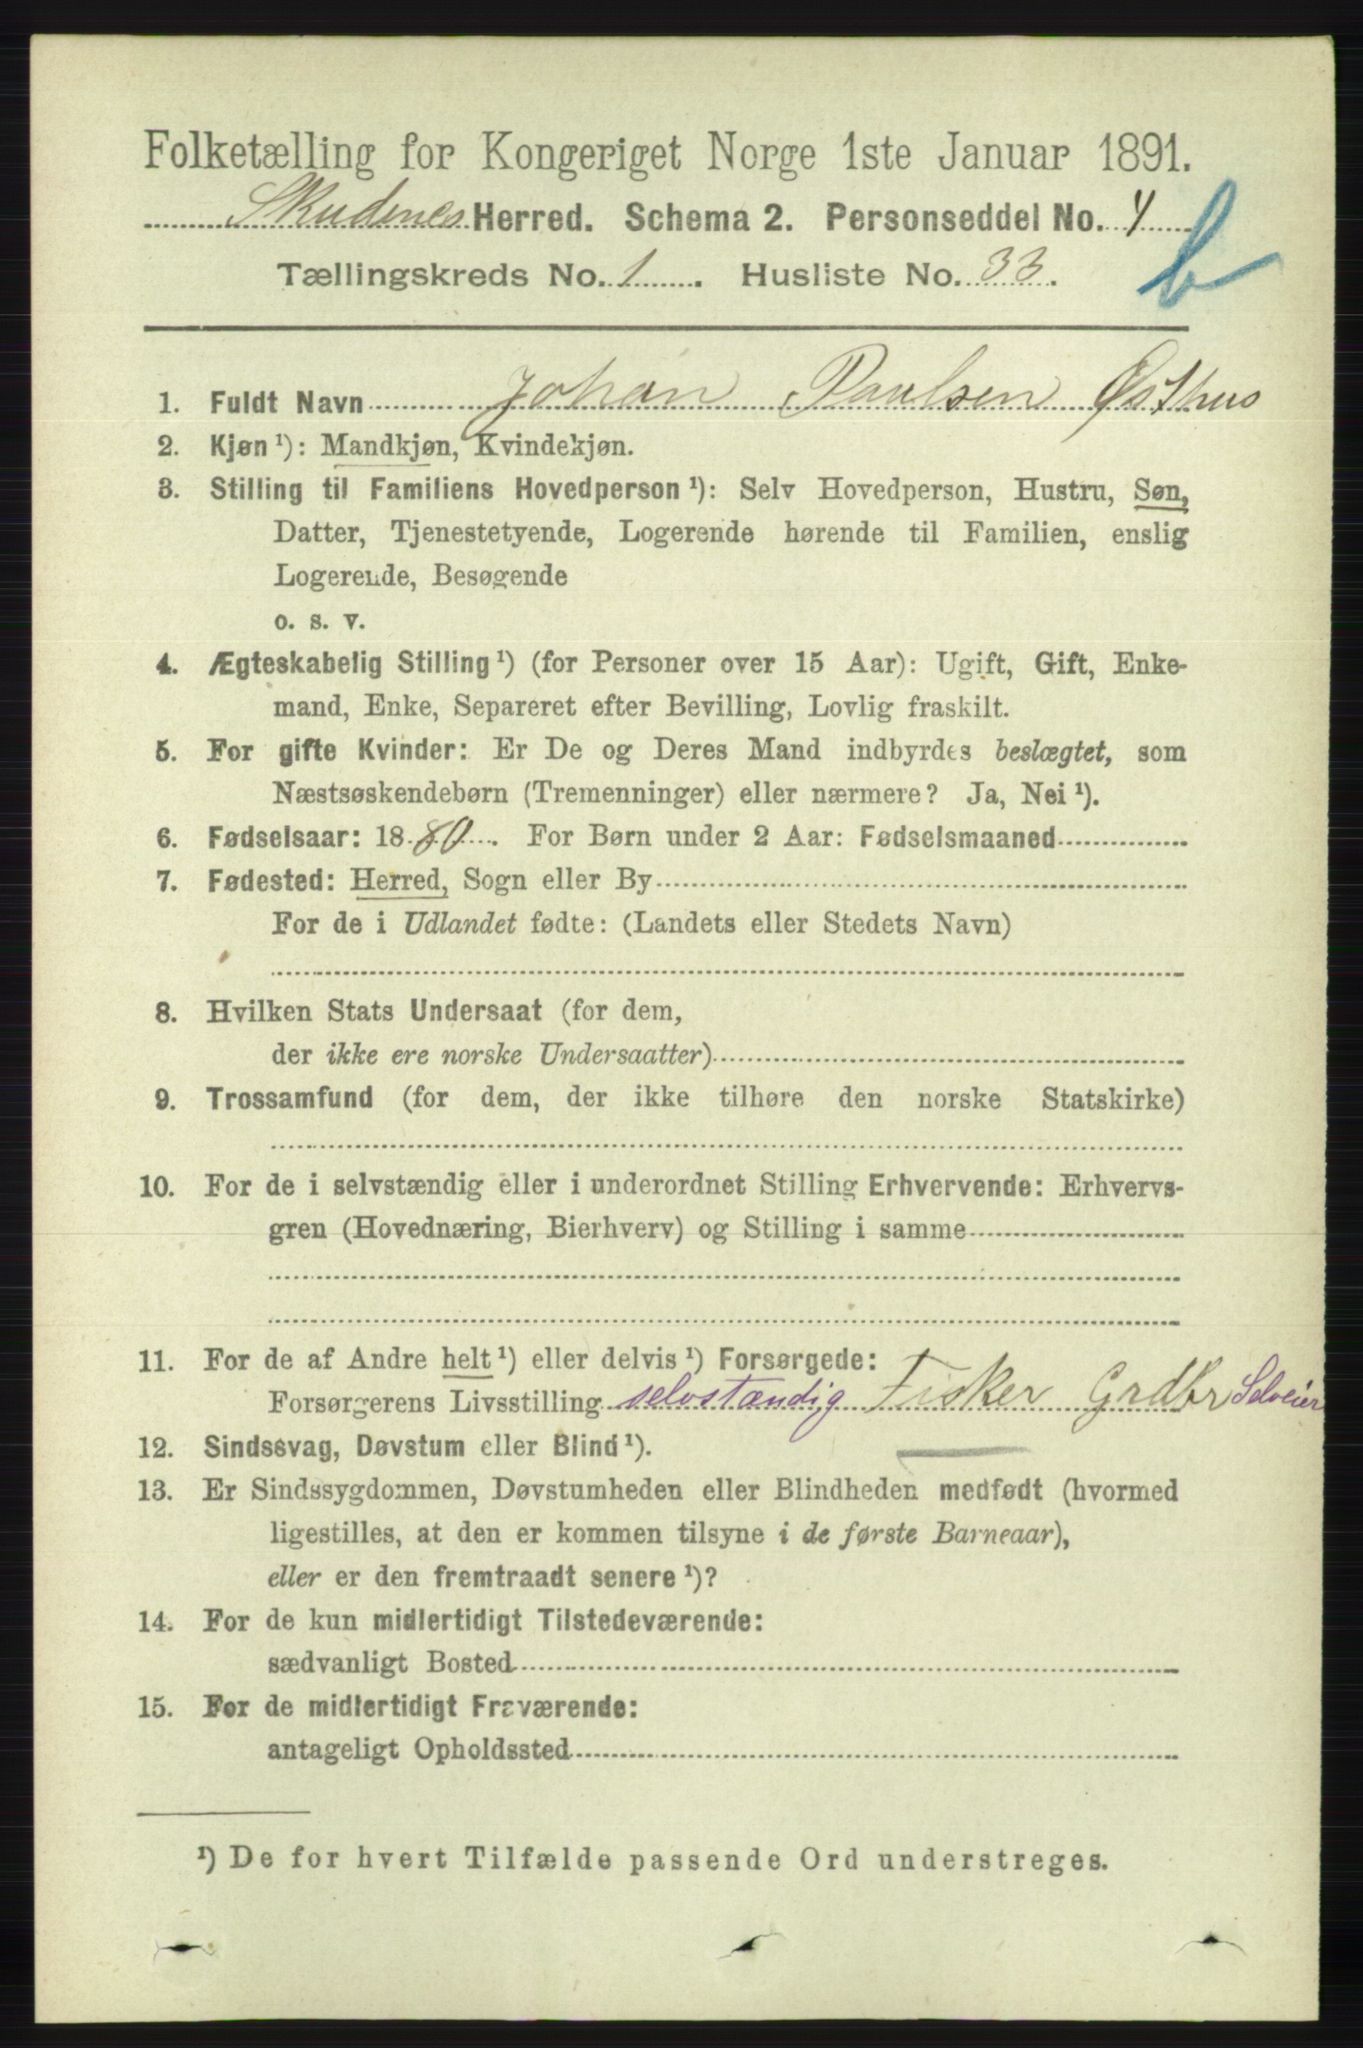 Folketælling for Kongeriget Norge 1ste Januar 1891.
Skudenes Herred. Schema 2. Personseddel No. 4
b
Tællingskreds No. 1. Husliste No. 33.
1. Fuldt Navn Johan Paulsen Østhus
2. Kjøn¹): Mandkjøn, Kvindekjøn.
3. Stilling til Familiens Hovedperson¹): Selv Hovedperson, Hustru, Søn,
Datter, Tjenestetyende, Logerende hørende til Familien, enslig
Logerende, Besøgende
o. s. v.
4. Ægteskabelig Stilling¹) (for Personer over 15 Aar): Ugift, Gift, Enke-
mand, Enke, Separeret efter Bevilling, Lovlig fraskilt.
5. For gifte Kvinder: Er De og Deres Mand indbyrdes beslægtet, som
Næstsøskendebørn (Tremenninger) eller nærmere? Ja, Nei¹).
6. Fødselsaar: 1880. For Børn under 2 Aar: Fødselsmaaned
7. Fødested: Herred, Sogn eller By
For de i Udlandet fødte: (Landets eller Stedets Navn)
8. Hvilken Stats Undersaat (for dem,
der ikke ere norske Undersaatter)
9. Trossamfund (for dem, der ikke tilhøre den norske Statskirke)
10. For de i selvstændig eller i underordnet Stilling Erhvervende: Erhvervs-
gren (Hovednæring, Bierhverv) og Stilling i samme
11. For de af Andre helt¹) eller delvis¹) Forsørgede:
Forsørgerens Livsstilling selvstændig Fisker Grdbr Selveier
12. Sindssvag, Døvstum eller Blind¹).
13. Er Sindssygdommen, Døvstumheden eller Blindheden medfødt (hvormed
ligestilles, at den er kommen tilsyne i de første Barneaar),
eller er den fremtraadt senere¹)?
14. For de kun midlertidigt Tilstedeværende:
sædvanligt Bosted
15. For de midlertidigt Fraværende:
antageligt Opholdssted
¹) De for hvert Tilfælde passende Ord understreges.